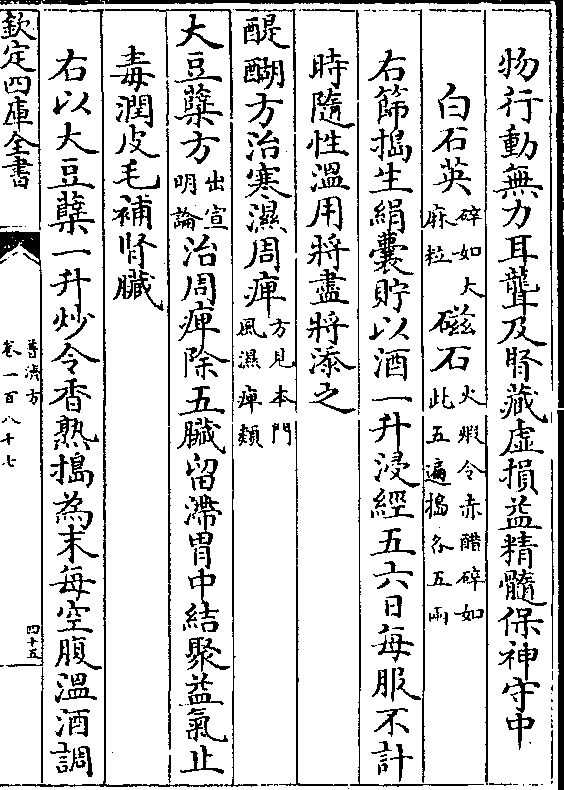 物行動無力耳聾及腎藏虛損益精髓保神守中
白石英碎如大麻粒磁石火煆令赤醋碎如此五遍搗各五兩
右篩搗生絹囊貯以酒一升浸經五六日每服不計
時隨性溫用將盡將添之
醍醐方治寒濕周痺方見本門風濕痺類
大豆蘗方出宣明論治周痺除五臟留滯胃中結聚益氣止
毒潤皮毛補腎臟
右以大豆蘗一升炒令香熟搗為末每空腹溫酒調
欽定四庫全書
普濟方
卷一百八十七
四十五